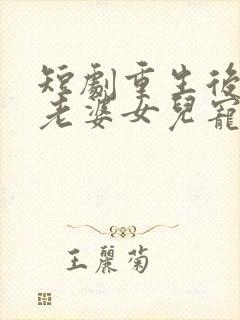 短劇重生後
老婆女兒寵
王麗菊